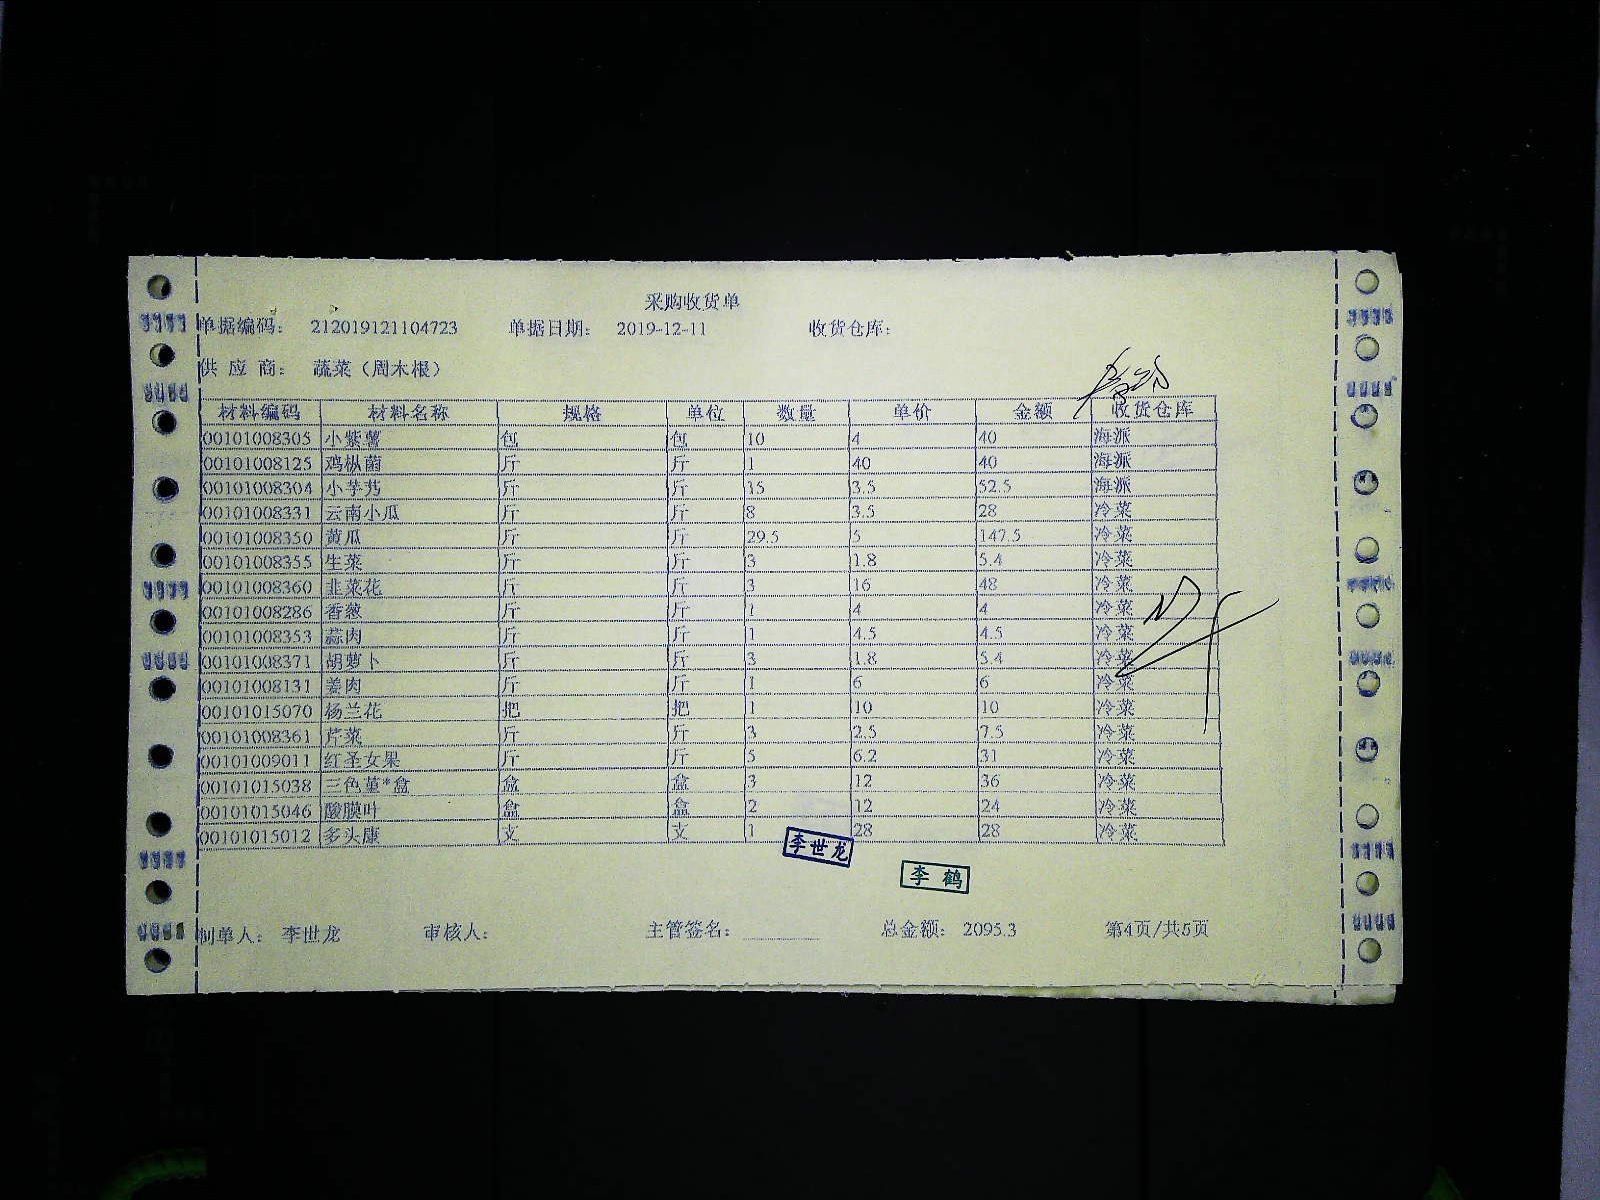 采购收货单
单据编码： 212019121104723 单据日期： 2019-12-11 收货仓库：
供 应 商： 蔬菜（周木根）
材料编码 材料名称 规格 单位 数量 单价 金额 收货仓库
00101008305 小紫薯 包 包 10 4 40 海派
00101008125 鸡枞菌 斤 斤 1 40 40 海派
00101008304 小芋艿 斤 斤 15 3.5 52.5 海派
00101008331 云南小瓜 斤 斤 8 3.5 28 冷菜
00101008350 黄瓜 斤 斤 29.5 5 147.5 冷菜
00101008355 生菜 斤 斤 3 1.8 5.4 冷菜
00101008360 韭菜花 斤 斤 3 16 48 冷菜
00101008286 香葱 斤 斤 1 4 4 冷菜
00101008353 蒜肉 斤 斤 1 4.5 4.5 冷菜
00101008371 胡萝卜 斤 斤 3 1.8 5.4 冷菜
00101008131 姜肉 斤 斤 1 6 6 冷菜
00101015070 杨兰花 把 把 1 10 10 冷菜
00101008361 芹菜 斤 斤 3 2.5 7.5 冷菜
00101009011 红圣女果 斤 斤 5 6.2 31 冷菜
00101015038 三色堇*盒 盒 盒 3 12 36 冷菜
00101015046 酸膜叶 盒 盒 2 12 24 冷菜
00101015012 多头康 支 支 1 28 28 冷菜
李世龙
李鹤
制单人： 李世龙 审核人： 主管签名： 总金额： 2095.3 第4页/共5页